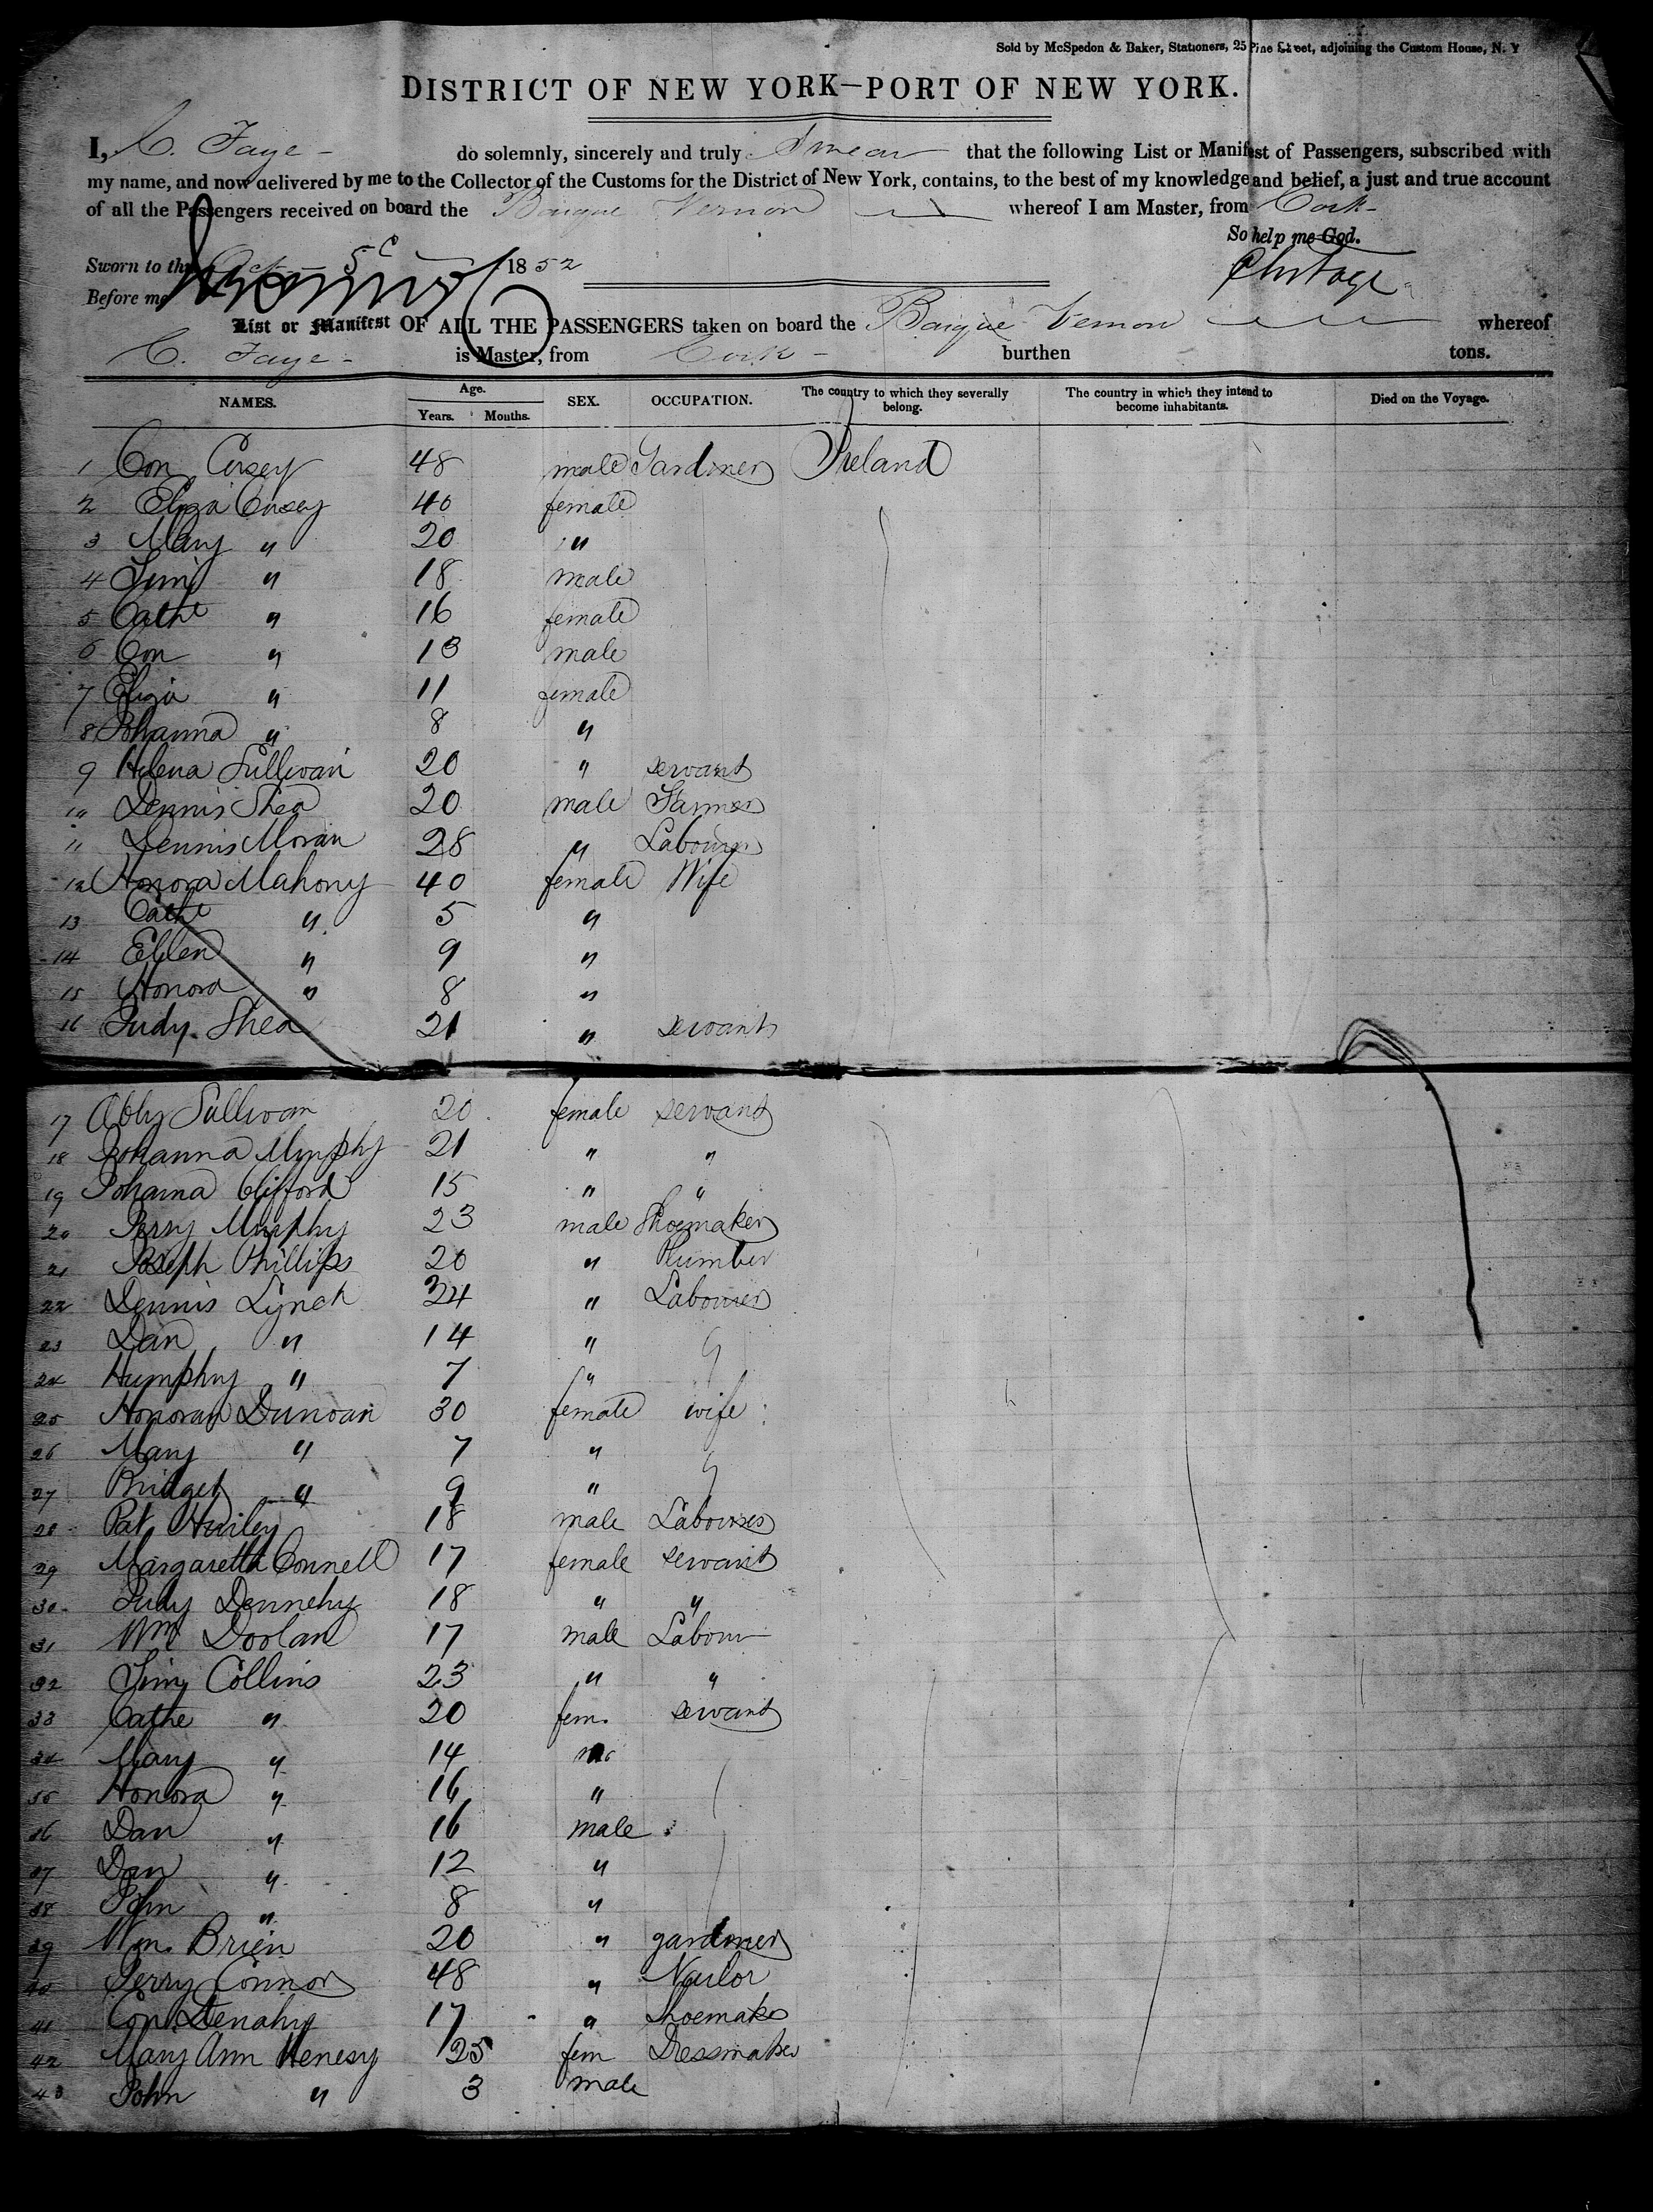 Sold by McSpedon & Baker, Stationers, 25 Pine Street, adjoining the Custom House, N. Y
DISTRICT OF NEW YORK—PORT OF NEW YORK.
I, C. Faye - do solemnly, sincerely and truly Swear that the following List or Manifest of Passengers, subscribed with
my name, and now delivered by me to the Collector of the Customs for the District of New York, contains, to the best of my knowledge and belief, a just and true account
of all the Passengers received on board the Barque Vernon whereof I am Master, from Cork -
So help me God.
Sworn to this Oct 5 1852
Before me
List or Manifest OF ALL THE PASSENGERS taken on board the Barque Vernon whereof
C. Faye - is Master, from Cork - burthen tons.
NAMES. Age. Years. Months. SEX. OCCUPATION. The country to which they severally belong. The country in which they intend to become inhabitants. Died on the Voyage.
1 Con 48 male Gardiner Ireland
2 Eliza 40 female
3 Mary " 20 "
4 Tim " 18 male
5 Cathe " 16 female
6 Con " 13 male
7 Eliza " 11 female
8 Johanna " 8 "
9 Helena Sullivan 20 " servant
10 Dennis Shea 20 male Farmer
11 Dennis Moran 28 " Labourer
12 Honora Mahony 40 female Wife
13 Cathe " 5 "
14 Ellen " 9 "
15 Honora " 8 "
16 Judy Shea 21 " servant
17 Abby Sullivan 20 female servant
18 Johanna Murphy 21 " "
19 Johanna Clifford 15 " "
20 Jerry Murphy 23 male Shoemaker
21 Joseph Phillips 20 " Plumber
22 Dennis Lynch 24 " Labourer
23 Dan " 14 "
24 Humphry " 7 "
25 Honorah Dunvan 30 female wife
26 Mary " 7 "
27 Bridget " 9 "
28 Pat Hurley 18 male Labourer
29 Margaretta Connell 17 female servant
30 Judy Dennehy 18 " "
31 Wm Doolan 17 male Labour
32 Tim Collins 23 " "
33 Cathe " 20 fem. servant
34 Mary " 14
35 Honora " 16 "
36 Dan " 16 male
37 Dan " 12 "
38 John " 8 "
39 Wm. Brien 20 " gardiner
40 Jerry Connor 48 " Nailor
41 Con Denahy 17 " Shoemaker
42 Mary Ann Henesy 25 fem Dressmaker
43 John " 3 male